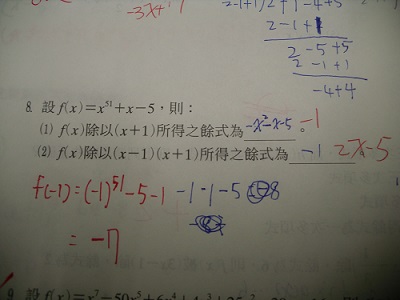 -3x+1
2-1+1/2+1-4+5
2-1+1
2-5+5
2-1+1
-4+4
8. 設f(x)=x⁵¹+x-5，則：
(1) f(x)除以(x+1)所得之餘式為 -x²-x-5 。 -1
(2) f(x)除以(x-1)(x+1)所得之餘式為 -1 2x-5
f(-1)=(-1)⁵¹-5-1 -1-1-5
= -7
9. 設f(x)=x⁷-50x⁵+6x⁴